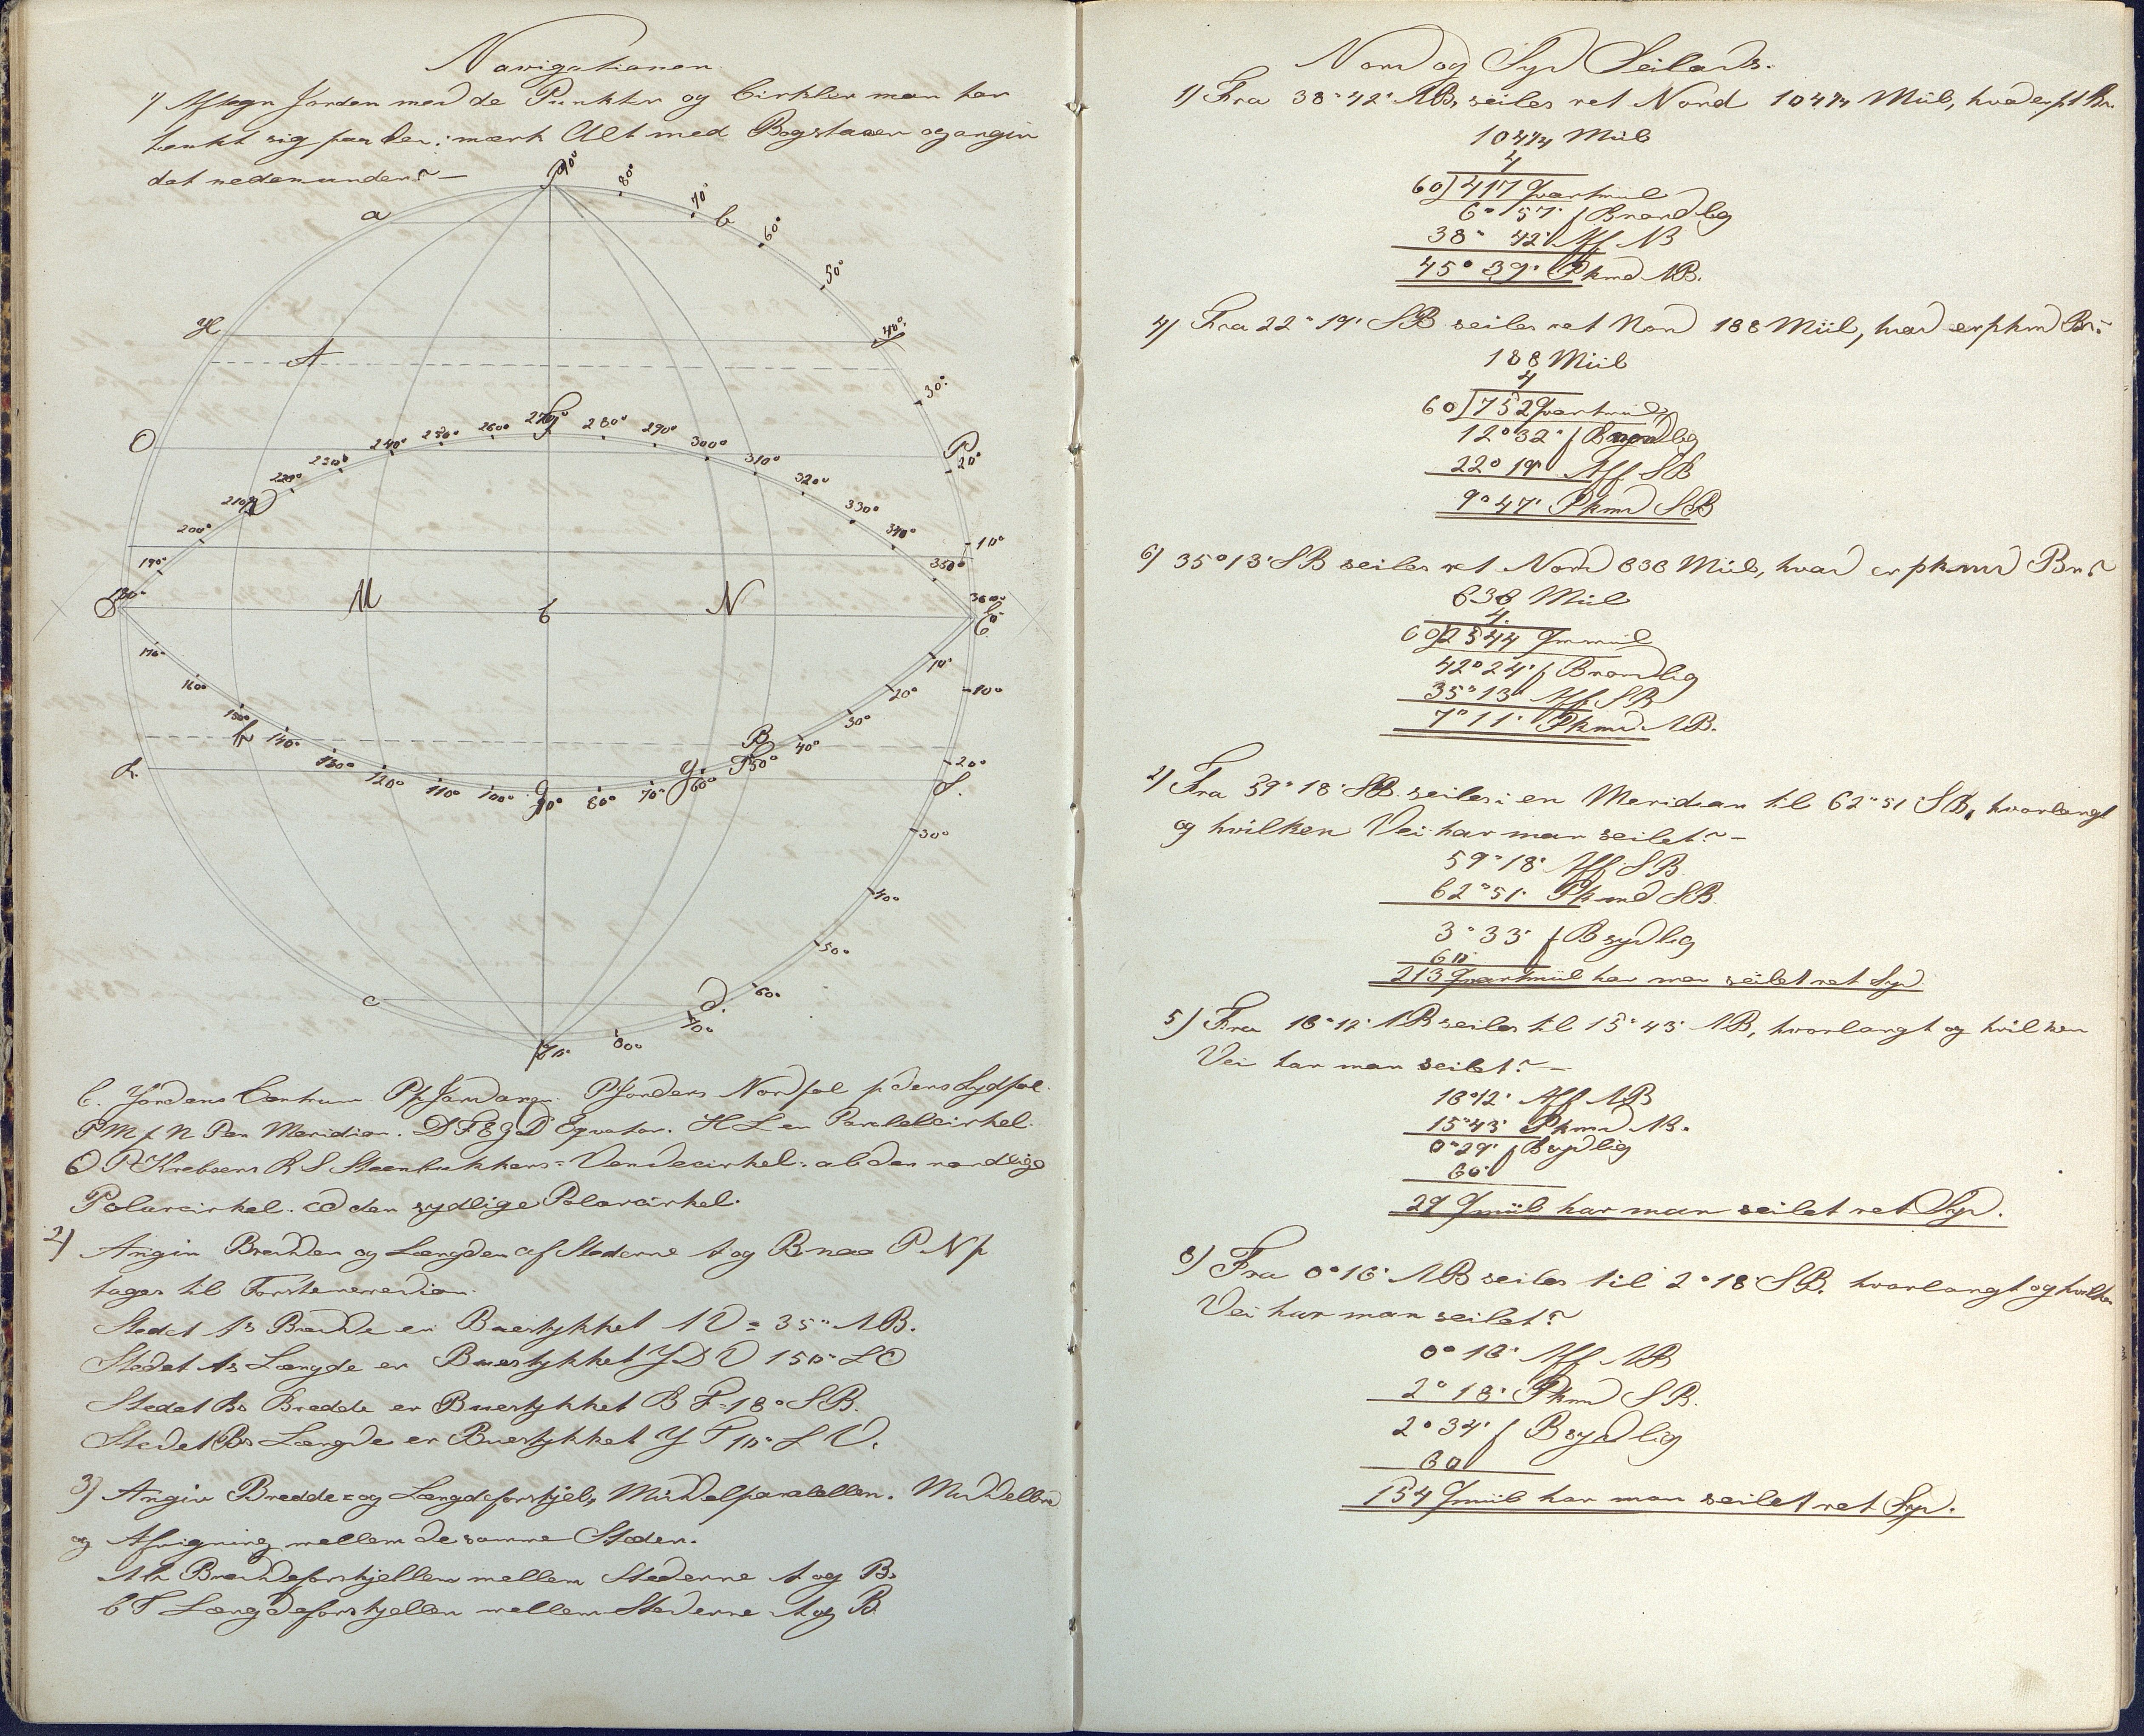 Navigationen
1/ Aftegn Jorden med de Punkter og Cirkler man har
tænkt sig paa den; mærk Alt med Bogstaver og angiv
det nedenunder? —
P 90°
80°
70°
a
b
60°
50°
H
40°
A
30°
O
P
20°
10°
180° 190° 200° 210° 220° 230° 240° 250° 260° 270° 280° 290° 300° 310° 320° 330° 340° 350° 360°
D
M
C
N
E
0°
170° 160° 150° 140° 130° 120° 110° 100° 90° 80° 70° 60° 50° 40° 30° 20° 10°
h
g
Y
B
F
R
S.
10°
20°
30°
40°
50°
60°
70°
80°
c
d.
p
C. Jordens Centrum Pp Jordaxen P Jordens Nordpol p dens Sydpol.
P M p N P en Meridian. D F E g D Eqvator. H L en Paralelcirkel.
O P Krebsens R S Steenbukkens = Vendecirkel. ab den nordlige
Polarcirkel. cd den sydlige Polarcirkel.
2/ Angiv Bredden og Længden af Stederne A og B naar P N p
tages til Førstemeredian.
Stedet As Bredde er Buestykket A V = 35° NB.
Stedet As Længde er Buestykket Y D V 150° L O
Stedet Bs Bredde er Buestykket B F = 18° SB.
Stedet Bs Længde er Buestykket Y F 10° L V.
3) Angiv Bredde = og Længdeforskjel, Middelparalellen. Middelbre
og Afvigning mellem de samme Steder.
Ah Breddeforskjellen mellem Stederne A og B.
6 F Længdeforskjellen mellem Stederne A og B
Nord og Syd Seilads.
1) Fra 38° 42' NB, seiles ret Nord 104 1/4 Miil, hvad er pk Br.
104 1/4 Miil
4
60) 417 Qvartmiil
6° 57' f Bnordlig
38° 42' Aff NB
45° 39' Pkmd NB.
4) Fra 22° 19' SB seiles ret Nord 188 Miil, hvad er pkmd Br.?
188 Miil
4
60) 752 Qvartmiil
12° 32' f Bnordlig
22° 19' Aff SB
9° 47' Pkmd SB
6) 35° 13' SB seiles ret Nord 636 Miil, hvad er pkmd Br.?
636 Miil
4
60) 2544 Qvmiil
42° 24' f Bnordlig
35° 13' Aff SB
7° 11' Pkmd NB.
2) Fra 59° 18' SB. seiles i en Meridian til 62° 51 SB, hvorlangt
og hvilken Vei har man seilet? —
59° 18' Aff SB.
62° 51' Pkmd SB.
3° 33' f B sydlig
60
213 Qvartmiil har man seilet ret Syd
5) Fra 16° 12' NB seiles til 15° 43' NB, hvorlangt og hvilken
Vei har man seilet? —
16° 12' Aff NB
15° 43' Pkmd NB.
0° 29' f Bsydlig
60
29 Qmiil har man seilet ret Syd.
8) Fra 0° 16' NB seiles til 2° 18' SB. hvorlangt og hvilken
Vei har man seilet?
0° 16' Aff NB
2° 18' Pkmd SB.
2° 34' f B sydlig
60
154 Qmiil har man seilet ret Syd.